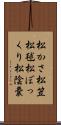 松かさ松笠
松毬松ぼっ
くり松陰嚢